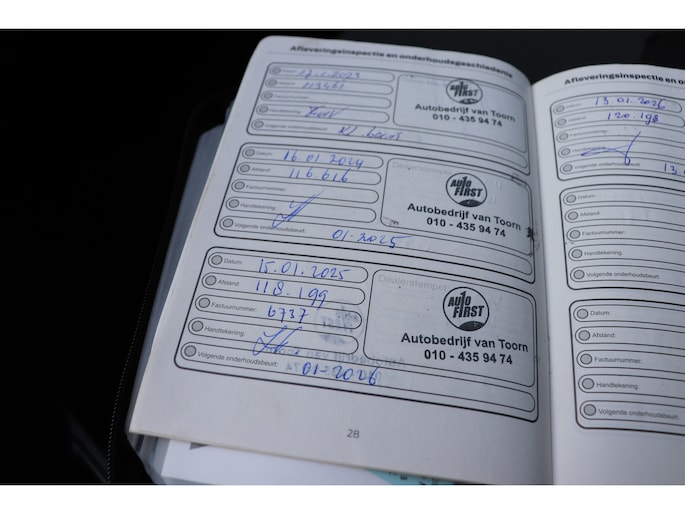 Afleveringsinspectie en onderhoudsgeschiedenis
113461
Volgende onderhoudsbeurt:
AUTO FIRST
Autobedrijf van Toorn
010 - 435 94 74
Datum: 16.01.2024
Afstand: 116.616
Factuurnummer:
Handtekening:
Volgende onderhoudsbeurt: 01-2025
Dealerstempel
AUTO FIRST
Autobedrijf van Toorn
010 - 435 94 74
Datum: 15.01.2025
Afstand: 118.199
Factuurnummer: 6737
Handtekening:
Volgende onderhoudsbeurt: 01-2026
Dealerstempel
AUTO FIRST
Autobedrijf van Toorn
010 - 435 94 74
28
Afleveringsinspectie en o
Datum: 13.01.2026
Afstand: 120.198
Factuurnummer:
Handtekening:
Volgende onderhoudsbeurt:
Datum:
Afstand:
Factuurnummer:
Handtekening:
Volgende onderhoudsbeurt:
Datum:
Afstand:
Factuurnummer:
Handtekening:
Volgende onderhoudsbeurt: